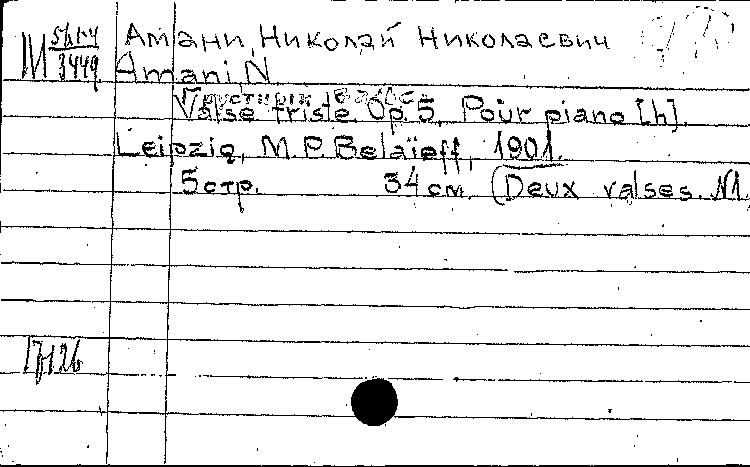 Амани, Николай Николаевич
М 3449
Amani, N.
Грустный вальс
Valse triste. Op. 5. Pour piano [h].
Leipzig, M. P. Belaïeff, 1901.
5 стр. 34 см. (Deux valses. №1.